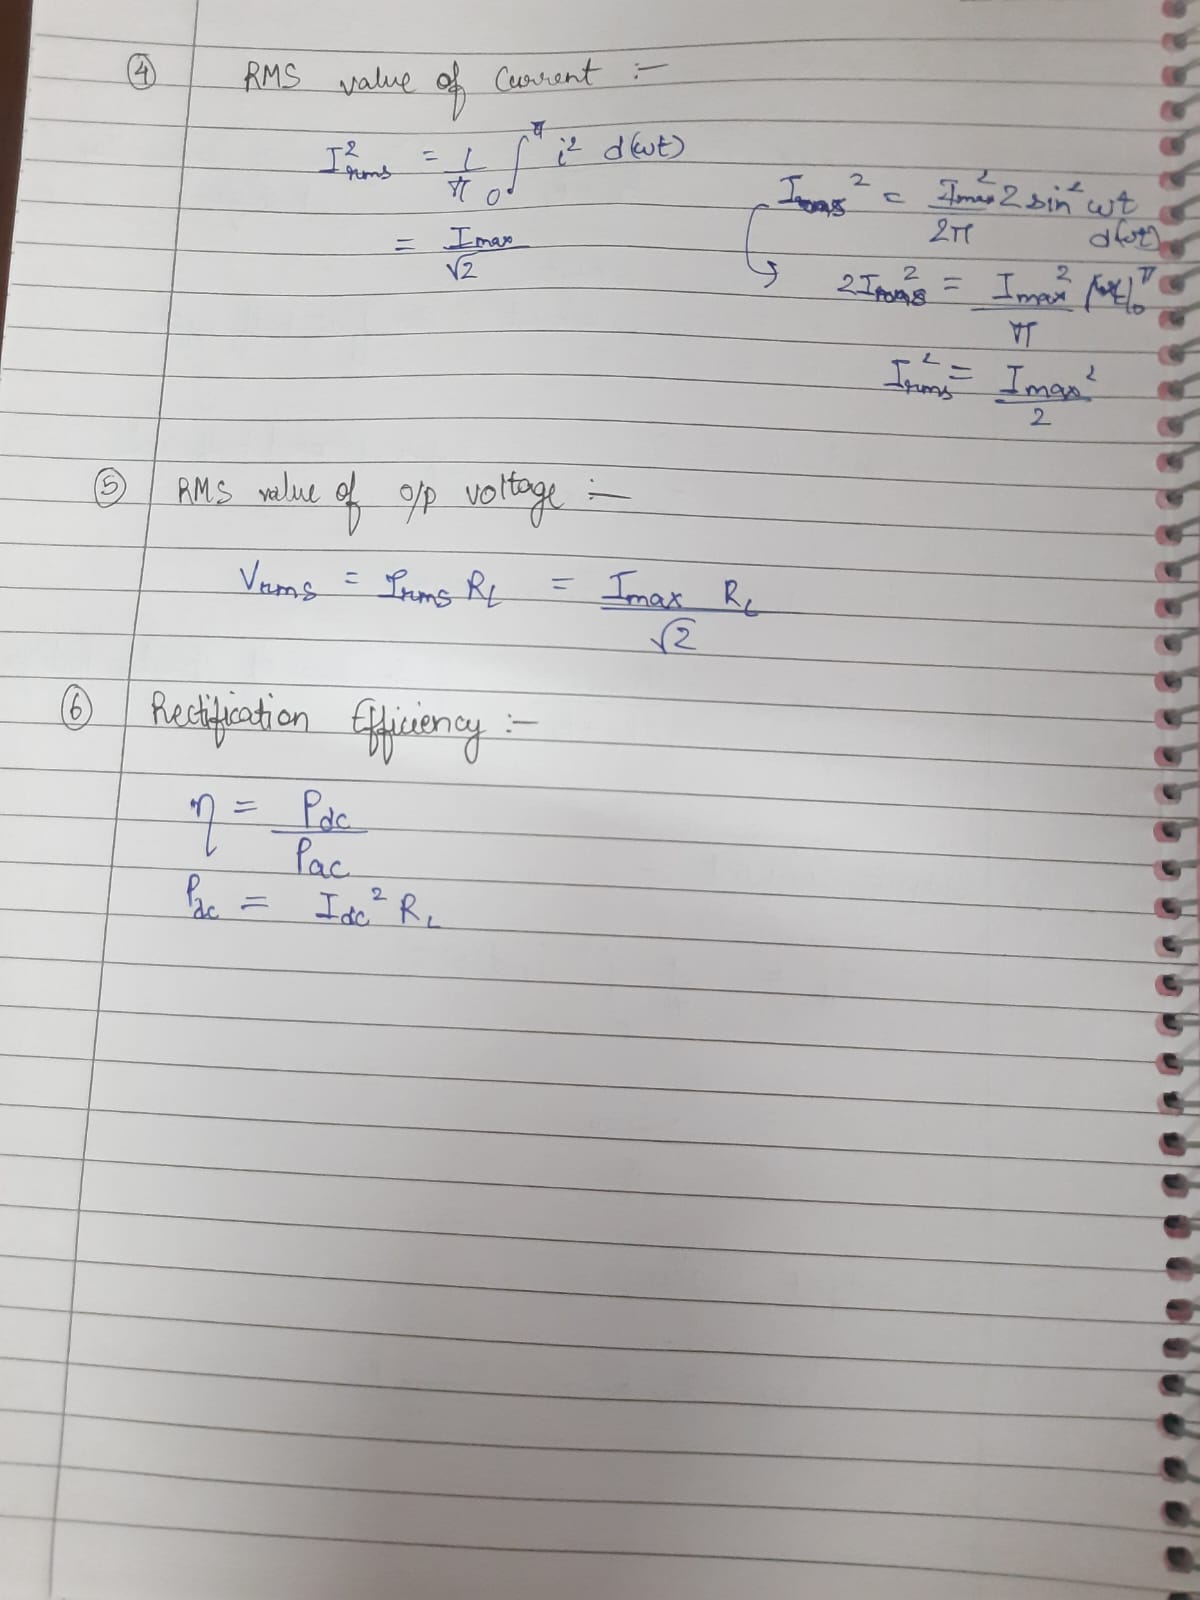 ④ RMS value of Current :-
I²rms = 1/π ₀∫^π i² d(ωt)
= Imax/√2
Irms² = Imax² 2 sin² ωt d(ωt)/2π
2Irms² = Imax²/π [ωt]₀^π
Irms² = Imax²/2
⑤ RMS value of o/p voltage :-
Vrms = Irms RL = Imax RL/√2
⑥ Rectification Efficiency :-
η = Pdc/Pac
Pdc = Idc² RL